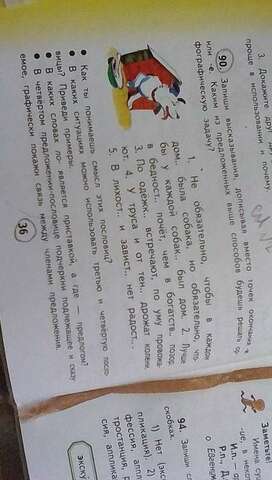 3. Докажите
проще в использовании и почему
90 Запиши высказывания, дописывая вместо точек окончания -и
или -е. Каким из предложенных выше способов будешь решать ор-
фографическую задачу?
1. Не обязательно, чтобы в каждом
дом.. была собака, но обязательно, что-
бы у каждой собак.. был дом. 2. Лучше
в бедност.. почёт, чем в богатств.. позор.
3. По одёжк.. встречают, по уму провожа-
ют. 4. У труса и от тен.. дрожат колени.
5. В лихост.. и завист.. нет радост..
● Как ты понимаешь смысл этих пословиц?
● В каких ситуациях можно использовать третью и четвёртую посло-
вицы? Приведи примеры.
● В каких словах по- является приставкой, а где — предлогом?
● В четвёртом предложении-пословице подчеркни подлежащее и сказу-
емое, графически покажи связь между членами предложения.
36
Заметьте!
Имена
-ие, в
И.п.
Р.п.
Д.
94. Запиши
скобках.
1) Нет (экс
пликация) 2)
фессия, апп
тростанция,
сия, апплика
о Евгении
экску